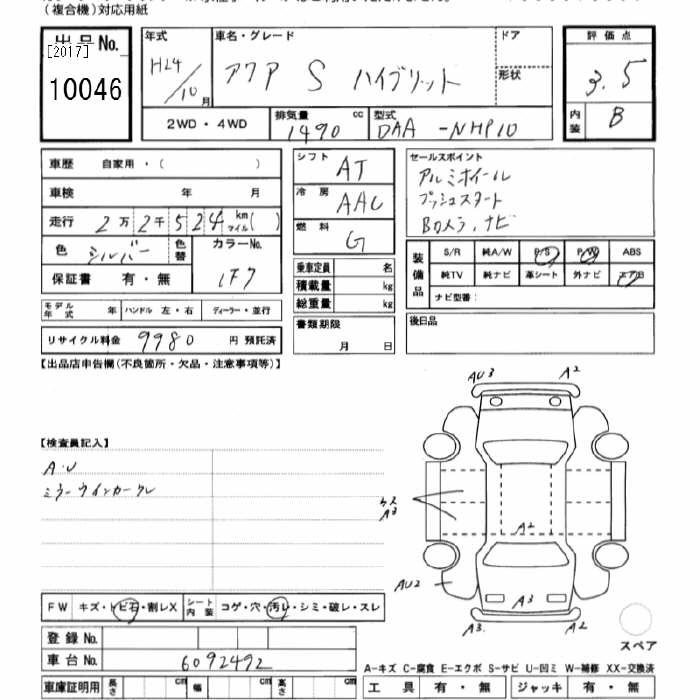 (複合機)対応用紙
出品No.
[2017]
10046
年式
H24/10月
車名・グレード
アクア S ハイブリット
ドア
形状
評価点
3.5
内装
B
2WD・4WD
排気量 cc
1490
型式
DAA-NHP10
車歴 自家用・( )
車検 年 月
走行 2万2千524 km マイル( )
色 シルバー
色替
カラーNo.
1F7
保証書 有・無
シフト AT
冷房 AAC
燃料 G
乗車定員 名
積載量 kg
総重量 kg
書類期限
月 日
セールスポイント
アルミホイール
プッシュスタート
Bカメラ、ナビ
装備品
S/R 純A/W P/S P/W ABS
純TV 純ナビ 革シート 外ナビ エアB
ナビ型番:
後日品
モデル年式 年 ハンドル 左・右 ディーラー・並行
リサイクル料金 9980 円 預託済
【出品店申告欄(不良箇所・欠品・注意事項等)】
【検査員記入】
A・U
ミラーウインカークレ
AU3 A2
A3
A2
AU2
A3
A3. A2
スペア
FW キズ・トビ石・割レX シート内装 コゲ・穴・汚レ・シミ・破レ・スレ
登録No.
車台No. 6092492
車庫証明用 長さ cm 幅 cm 高さ cm
A-キズ C-腐食 E-エクボ S-サビ U-凹ミ W-補修 XX-交換済
工具 有・無 ジャッキ 有・無